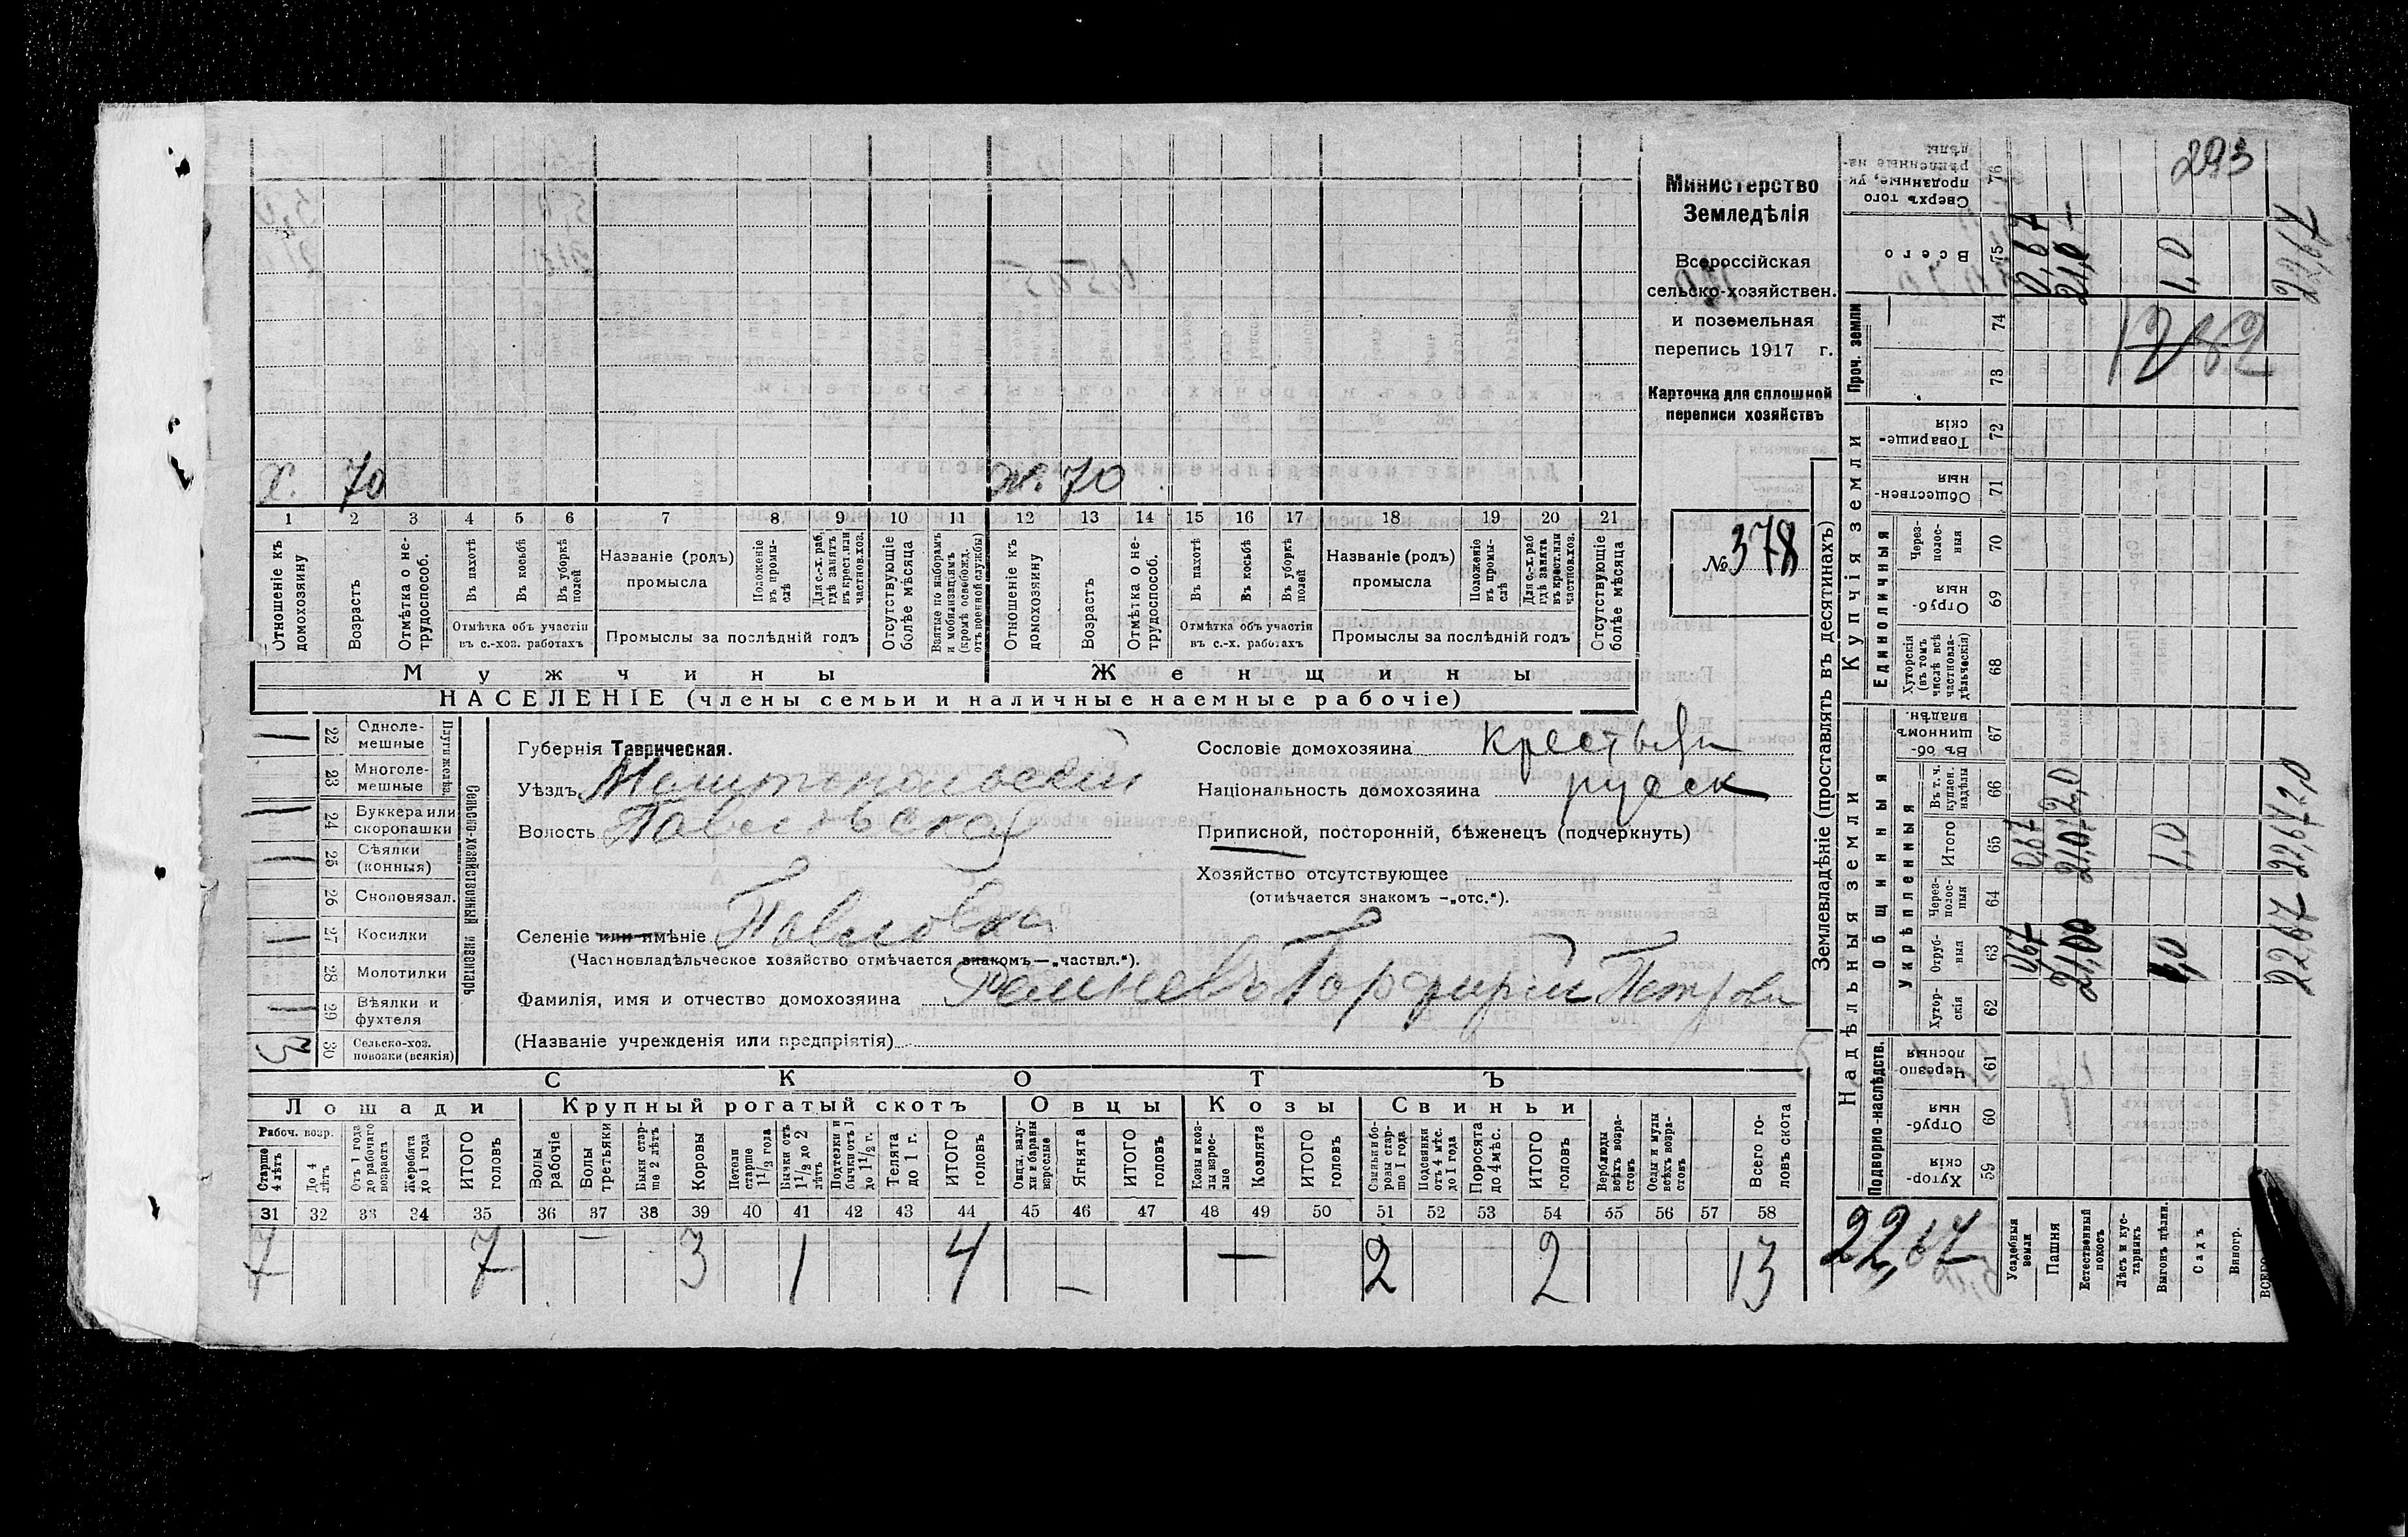 293
Министерство
Земледѣлія
Всероссійская
сельско-хозяйствен.
и поземельная
перепись 1917 г.
Карточка для сплошной
переписи хозяйствъ
№ 378
Х. 70
Ж. 70
1 2 3 4 5 6 7 8 9 10 11 12 13 14 15 16 17 18 19 20 21
Отношеніе къ домохозяину
Возрастъ
Отмѣтка о не-трудоспособ.
Въ пахотѣ
Въ косьбѣ
Въ уборкѣ полей
Отмѣтка объ участіи въ с.-хоз. работахъ
Названіе (родъ) промысла
Положеніе въ промы-слѣ
Для с.-х. раб. гдѣ занятъ въ крест. или частновл. хоз.
Промыслы за послѣдній годъ
Отсутствующіе болѣе мѣсяца
Взятые по наборамъ и мобилизаціямъ (кромѣ освобожд. отъ военной службы)
Отношеніе къ домохозяину
Возрастъ
Отмѣтка о не-трудоспособ.
Въ пахотѣ
Въ косьбѣ
Въ уборкѣ полей
Отмѣтка объ участіи въ с.-х. работахъ
Названіе (родъ) промысла
Положеніе въ промы-слѣ
Для с.-х. раб. гдѣ занята въ крест. или частновл. хоз.
Промыслы за послѣдній годъ
Отсутствующіе болѣе мѣсяца
Мужчины
Женщины
НАСЕЛЕНІЕ (члены семьи и наличные наемные рабочіе)
22 Одноле-мешные
23 Многоле-мешные
24 Буккера или скоропашки
25 Сѣялки (конныя)
26 Сноповязал.
27 Косилки
28 Молотилки
29 Вѣялки и фухтеля
30 Сельско-хоз. повозки (всякія)
3
Сельско-хозяйственный инвентарь
Губернія Таврическая.
Уѣздъ
Волость Павловская
Селеніе или имѣніе Павловка
(Частновладѣльческое хозяйство отмѣчается знакомъ—„частвл.“).
Фамилія, имя и отчество домохозяина Порфирій Петров
(Названіе учрежденія или предпріятія)
Сословіе домохозяина крестьян
Національность домохозяина русск
Приписной, посторонній, бѣженецъ (подчеркнуть)
Хозяйство отсутствующее
(отмѣчается знакомъ -„отс.“).
СКОТЪ
Лошади
Крупный рогатый скотъ
Овцы
Козы
Свиньи
Рабоч. возр.
Старше 4 лѣтъ
До 4 лѣтъ
Отъ 1 года до рабочаго возраста
Жеребята до 1 года
ИТОГО головъ
Волы рабочіе
Волы третьяки
Быки стар-ше 2 лѣтъ
Коровы
Нетели старше 1 1/2 года
Бычки отъ 1 1/2 до 2 лѣтъ
Подтелки и бычки отъ 1 до 1 1/2 г.
Телята до 1 г.
ИТОГО головъ
Овцы, валу-хи и бараны взрослые
Ягнята
ИТОГО головъ
Козы и коз-лы взрос-лые
Козлята
ИТОГО головъ
Свиньи и бо-ровы стар-ше 1 года
Подсвинки отъ 4 мѣс. до 1 года
Поросята до 4 мѣс.
ИТОГО головъ
Верблюды всѣхъ возра-стовъ
Ослы и мулы всѣхъ возра-стовъ
Всего го-ловъ скота
31 32 33 34 35 36 37 38 39 40 41 42 43 44 45 46 47 48 49 50 51 52 53 54 55 56 57 58
7 7 — 3 1 4 — — 2 2 13
Землевладѣніе (проставлять въ десятинахъ)
Надѣльныя земли
Купчія земли
Проч. земли
Подворно-наслѣдств.
Общинныя
Укрѣпленныя
Единоличныя
59 Хутор-скія
60 Отруб-ныя
61 Черезпо лосныя
62 Хутор-скія
63 Отруб-ныя
64 Черес-полос-ныя
65 Итого
66 Въ т. ч. куплен. надѣлы
67 Въ об-щинномъ владѣн.
68 Хуторскія (въ томъ числѣ всѣ частновла-дѣльческія)
69 Отруб-ныя
70 Через-полос-ныя
71 Обществен-ныя
72 Товарище-скія
73
74
75 Всего
76 Сверхъ того проданные, ук рѣпленные на-дѣлы
Усадебныя земли
Пашня
Естественный покосъ
Лѣсъ и кус-тарникъ
Выгонъ цѣлин.
Садъ
Виногр.
0,67 0,67 0,67
21,00 21,0 2,0 21,0 —
1,0 1,0 1,0
22,67 22,67 2,0 22,67
22,67